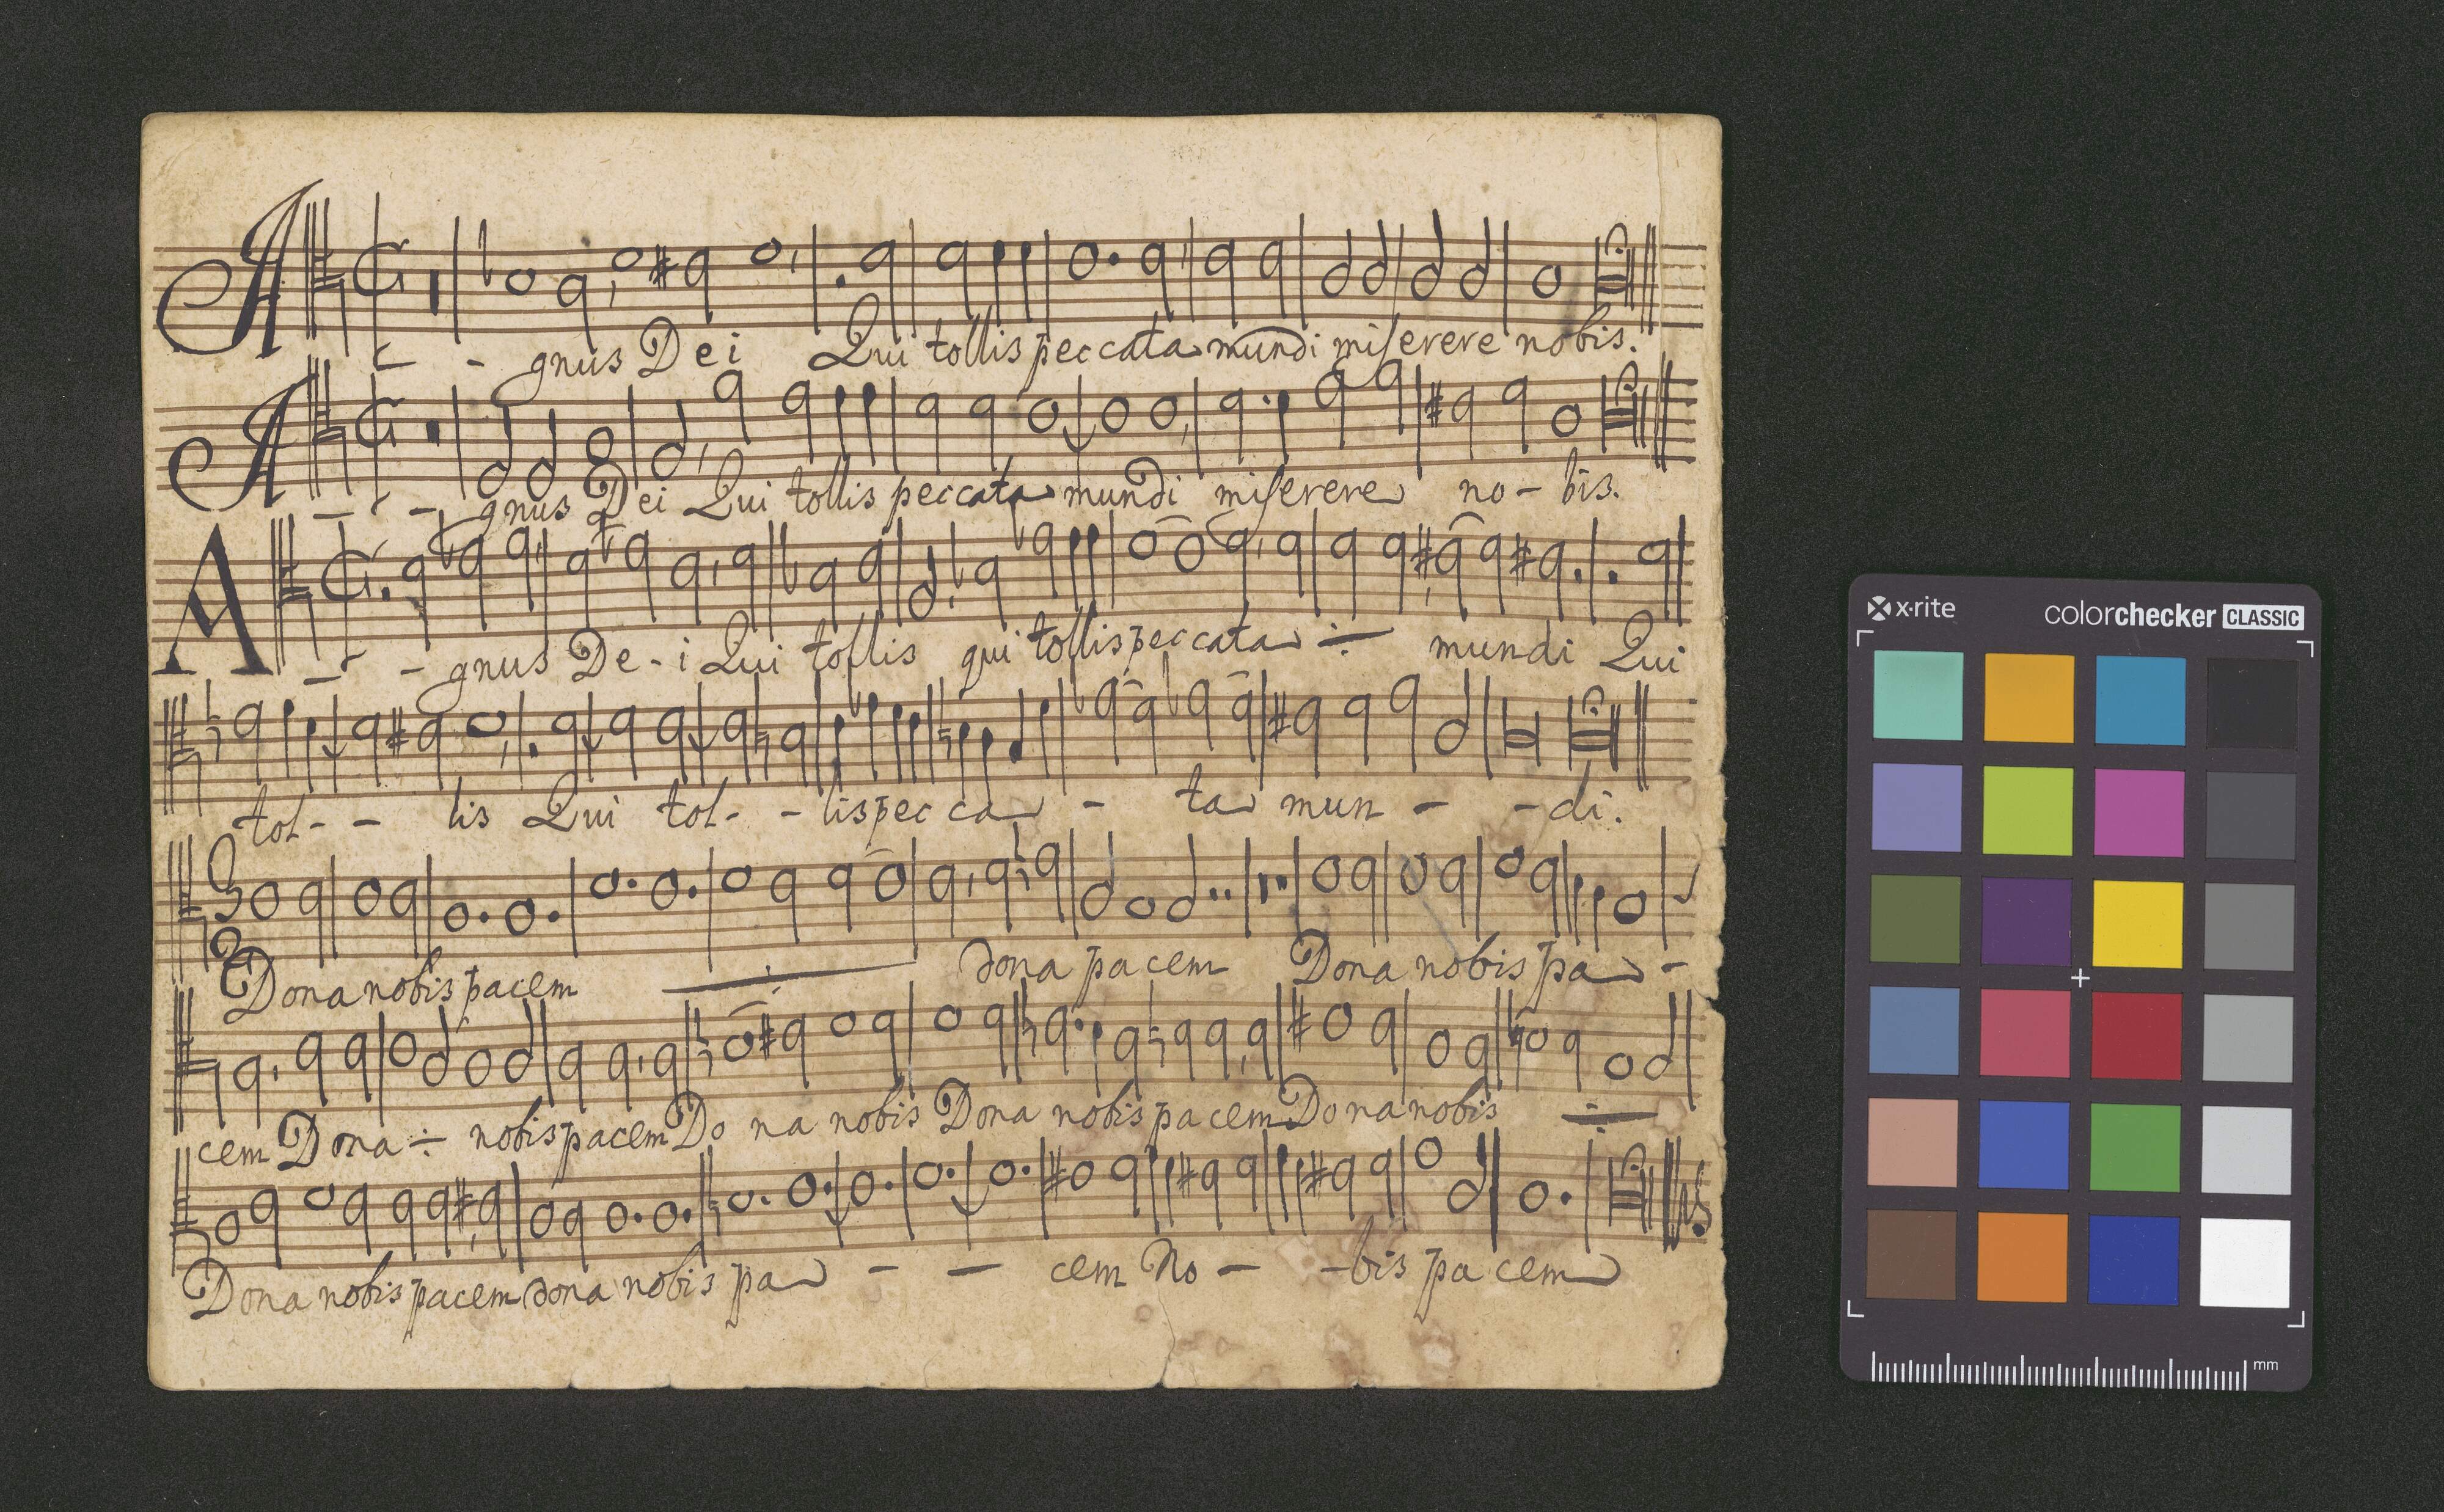 A - - gnus Dei Qui tollis peccata mundi miserere nobis.
A - - - gnus Dei Qui tollis peccata mundi miserere no - bis.
A - - - gnus De - i Qui tollis qui tollis peccata ÷ mundi Qui
tol - - lis Qui tol - - lis pecca - ta mun - - di.
3
2
Dona nobis pacem ÷ dona pacem Dona nobis pa -
cem Dona ÷ nobis pacem Do na nobis Dona nobis pacem Dona nobis ÷
Dona nobis pacem dona nobis pa - - cem No - - bis pacem
x·rite
colorchecker CLASSIC
mm